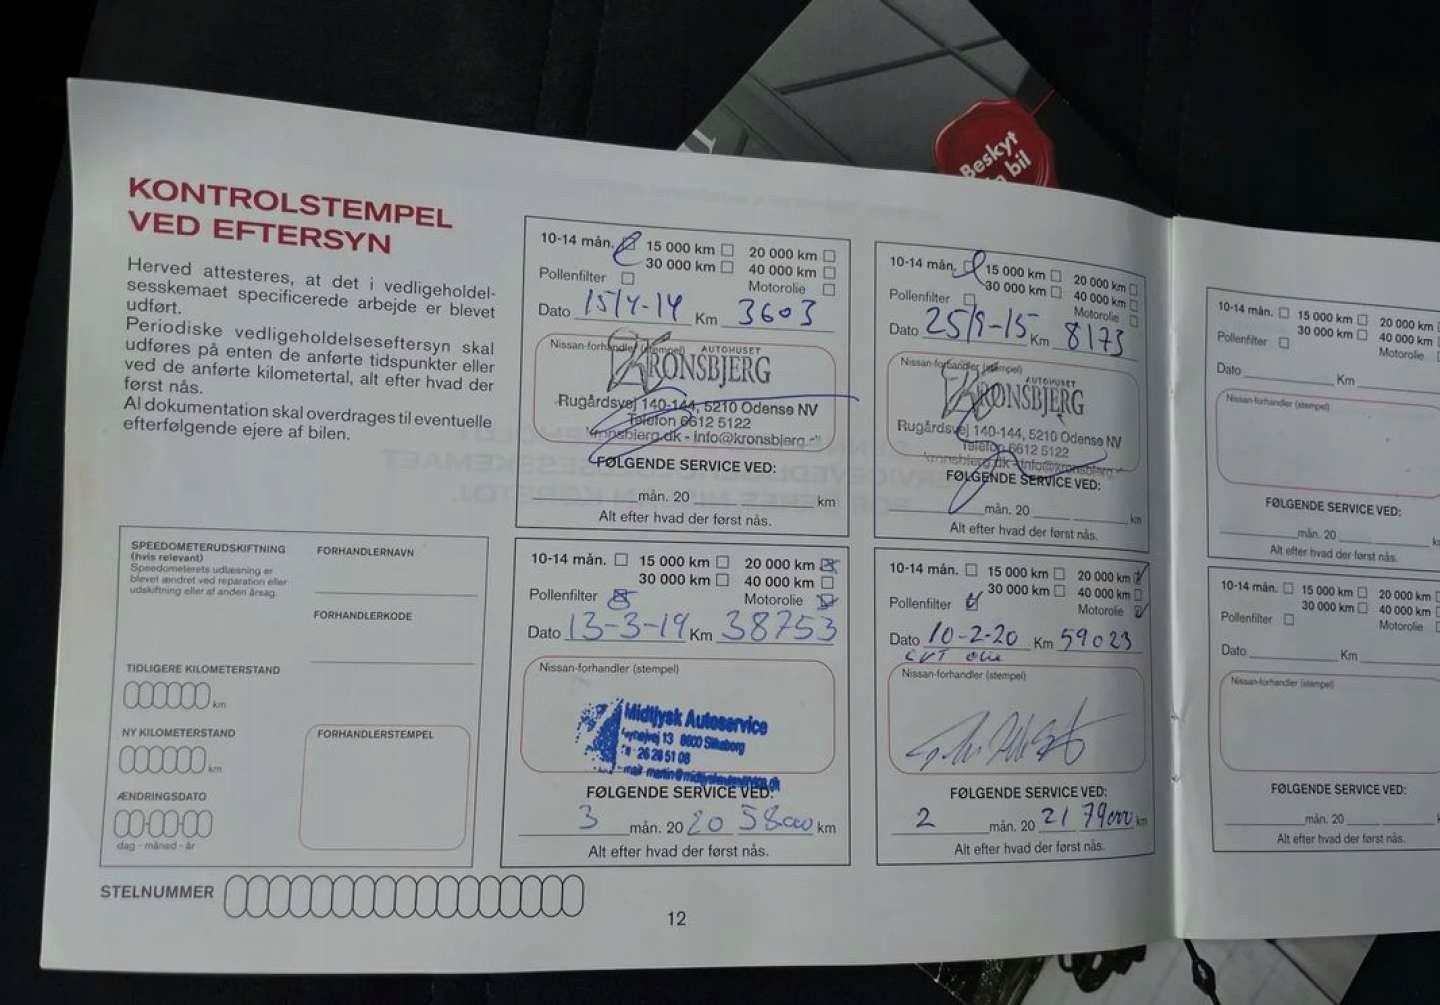 Beskyt
bil
KONTROLSTEMPEL
VED EFTERSYN
Herved attesteres, at det i vedligeholdel-
sesskemaet specificerede arbejde er blevet
udført.
Periodiske vedligeholdelseseftersyn skal
udføres på enten de anførte tidspunkter eller
ved de anførte kilometertal, alt efter hvad der
først nås.
Al dokumentation skal overdrages til eventuelle
efterfølgende ejere af bilen.
SPEEDOMETERUDSKIFTNING
(hvis relevant)
Speedometerets udlæsning er
blevet ændret ved reparation eller
udskiftning eller af anden årsag.
FORHANDLERNAVN
FORHANDLERKODE
TIDLIGERE KILOMETERSTAND
km
NY KILOMETERSTAND
km
ÆNDRINGSDATO
dag - måned - år
FORHANDLERSTEMPEL
STELNUMMER
10-14 mån. 15 000 km 20 000 km
30 000 km 40 000 km
Pollenfilter Motorolie
Dato 15/4-14 Km 3603
Nissan-forhandler (stempel)
AUTOHUSET
KRONSBJERG
Rugårdsvej 140-144, 5210 Odense NV
Telefon 6612 5122
kronsbjerg.dk - info@kronsbjerg.
FØLGENDE SERVICE VED:
mån. 20 km
Alt efter hvad der først nås.
10-14 mån. 15 000 km 20 000 km
30 000 km 40 000 km
Pollenfilter Motorolie
Dato 25/9-15 Km 8173
Nissan-forhandler (stempel)
AUTOHUSET
KRONSBJERG
Rugårdsvej 140-144, 5210 Odense NV
Telefon 6612 5122
kronsbjerg.dk - info@kronsbjerg.
FØLGENDE SERVICE VED:
mån. 20 km
Alt efter hvad der først nås.
10-14 mån. 15 000 km 20 000 km
30 000 km 40 000 km
Pollenfilter Motorolie
Dato 13-3-19 Km 38753
Nissan-forhandler (stempel)
Midtjysk Autoservice
13 8600 Silkeborg
26 28 51 08
FØLGENDE SERVICE VED:
3 mån. 20 20 58000 km
Alt efter hvad der først nås.
10-14 mån. 15 000 km 20 000 km
30 000 km 40 000 km
Pollenfilter Motorolie
Dato 10-2-20 Km 59023
CVT olie
Nissan-forhandler (stempel)
FØLGENDE SERVICE VED:
2 mån. 20 21 79000 km
Alt efter hvad der først nås.
12
10-14 mån. 15 000 km 20 000
30 000 km 40 000
Pollenfilter Motorolie
Dato Km
Nissan-forhandler (stempel)
FØLGENDE SERVICE VED:
mån. 20
Alt efter hvad der først nås.
10-14 mån. 15 000 km 20 000 km
30 000 km 40 000 km
Pollenfilter Motorolie
Dato Km
Nissan-forhandler (stempel)
FØLGENDE SERVICE VED:
mån. 20
Alt efter hvad der først nås.